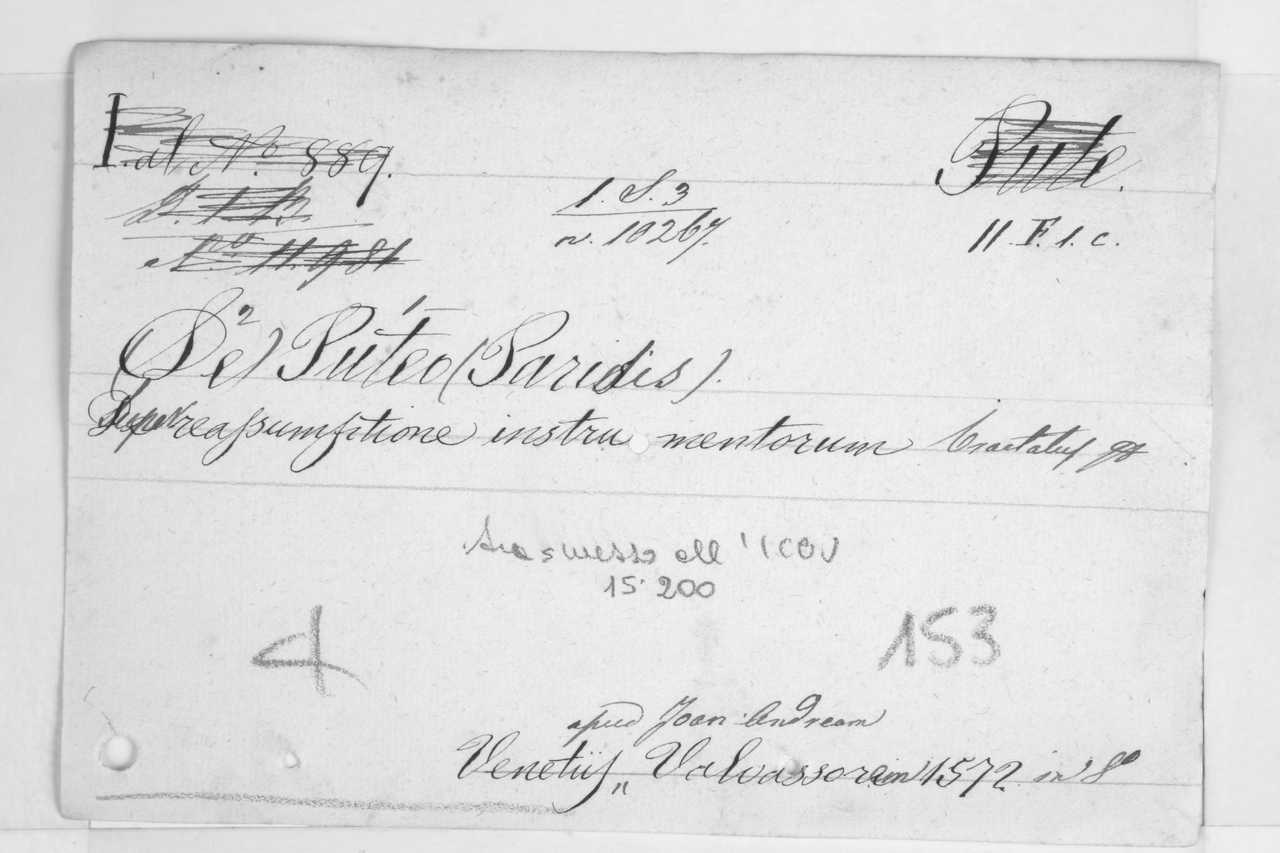 I. al No. 889.
Pute.
D. 1. B.
1. S. 3
No. 11.981
n. 10267.
11. F. 1. c.
(De)2 Púteo (Paridis).
Super reaſsumptione instru mentorum tractatus
trasmesso all'ICCU
15.200
4
153
apud Joan. Andream
Venetiis „ Valvassorem 1572 in 8°